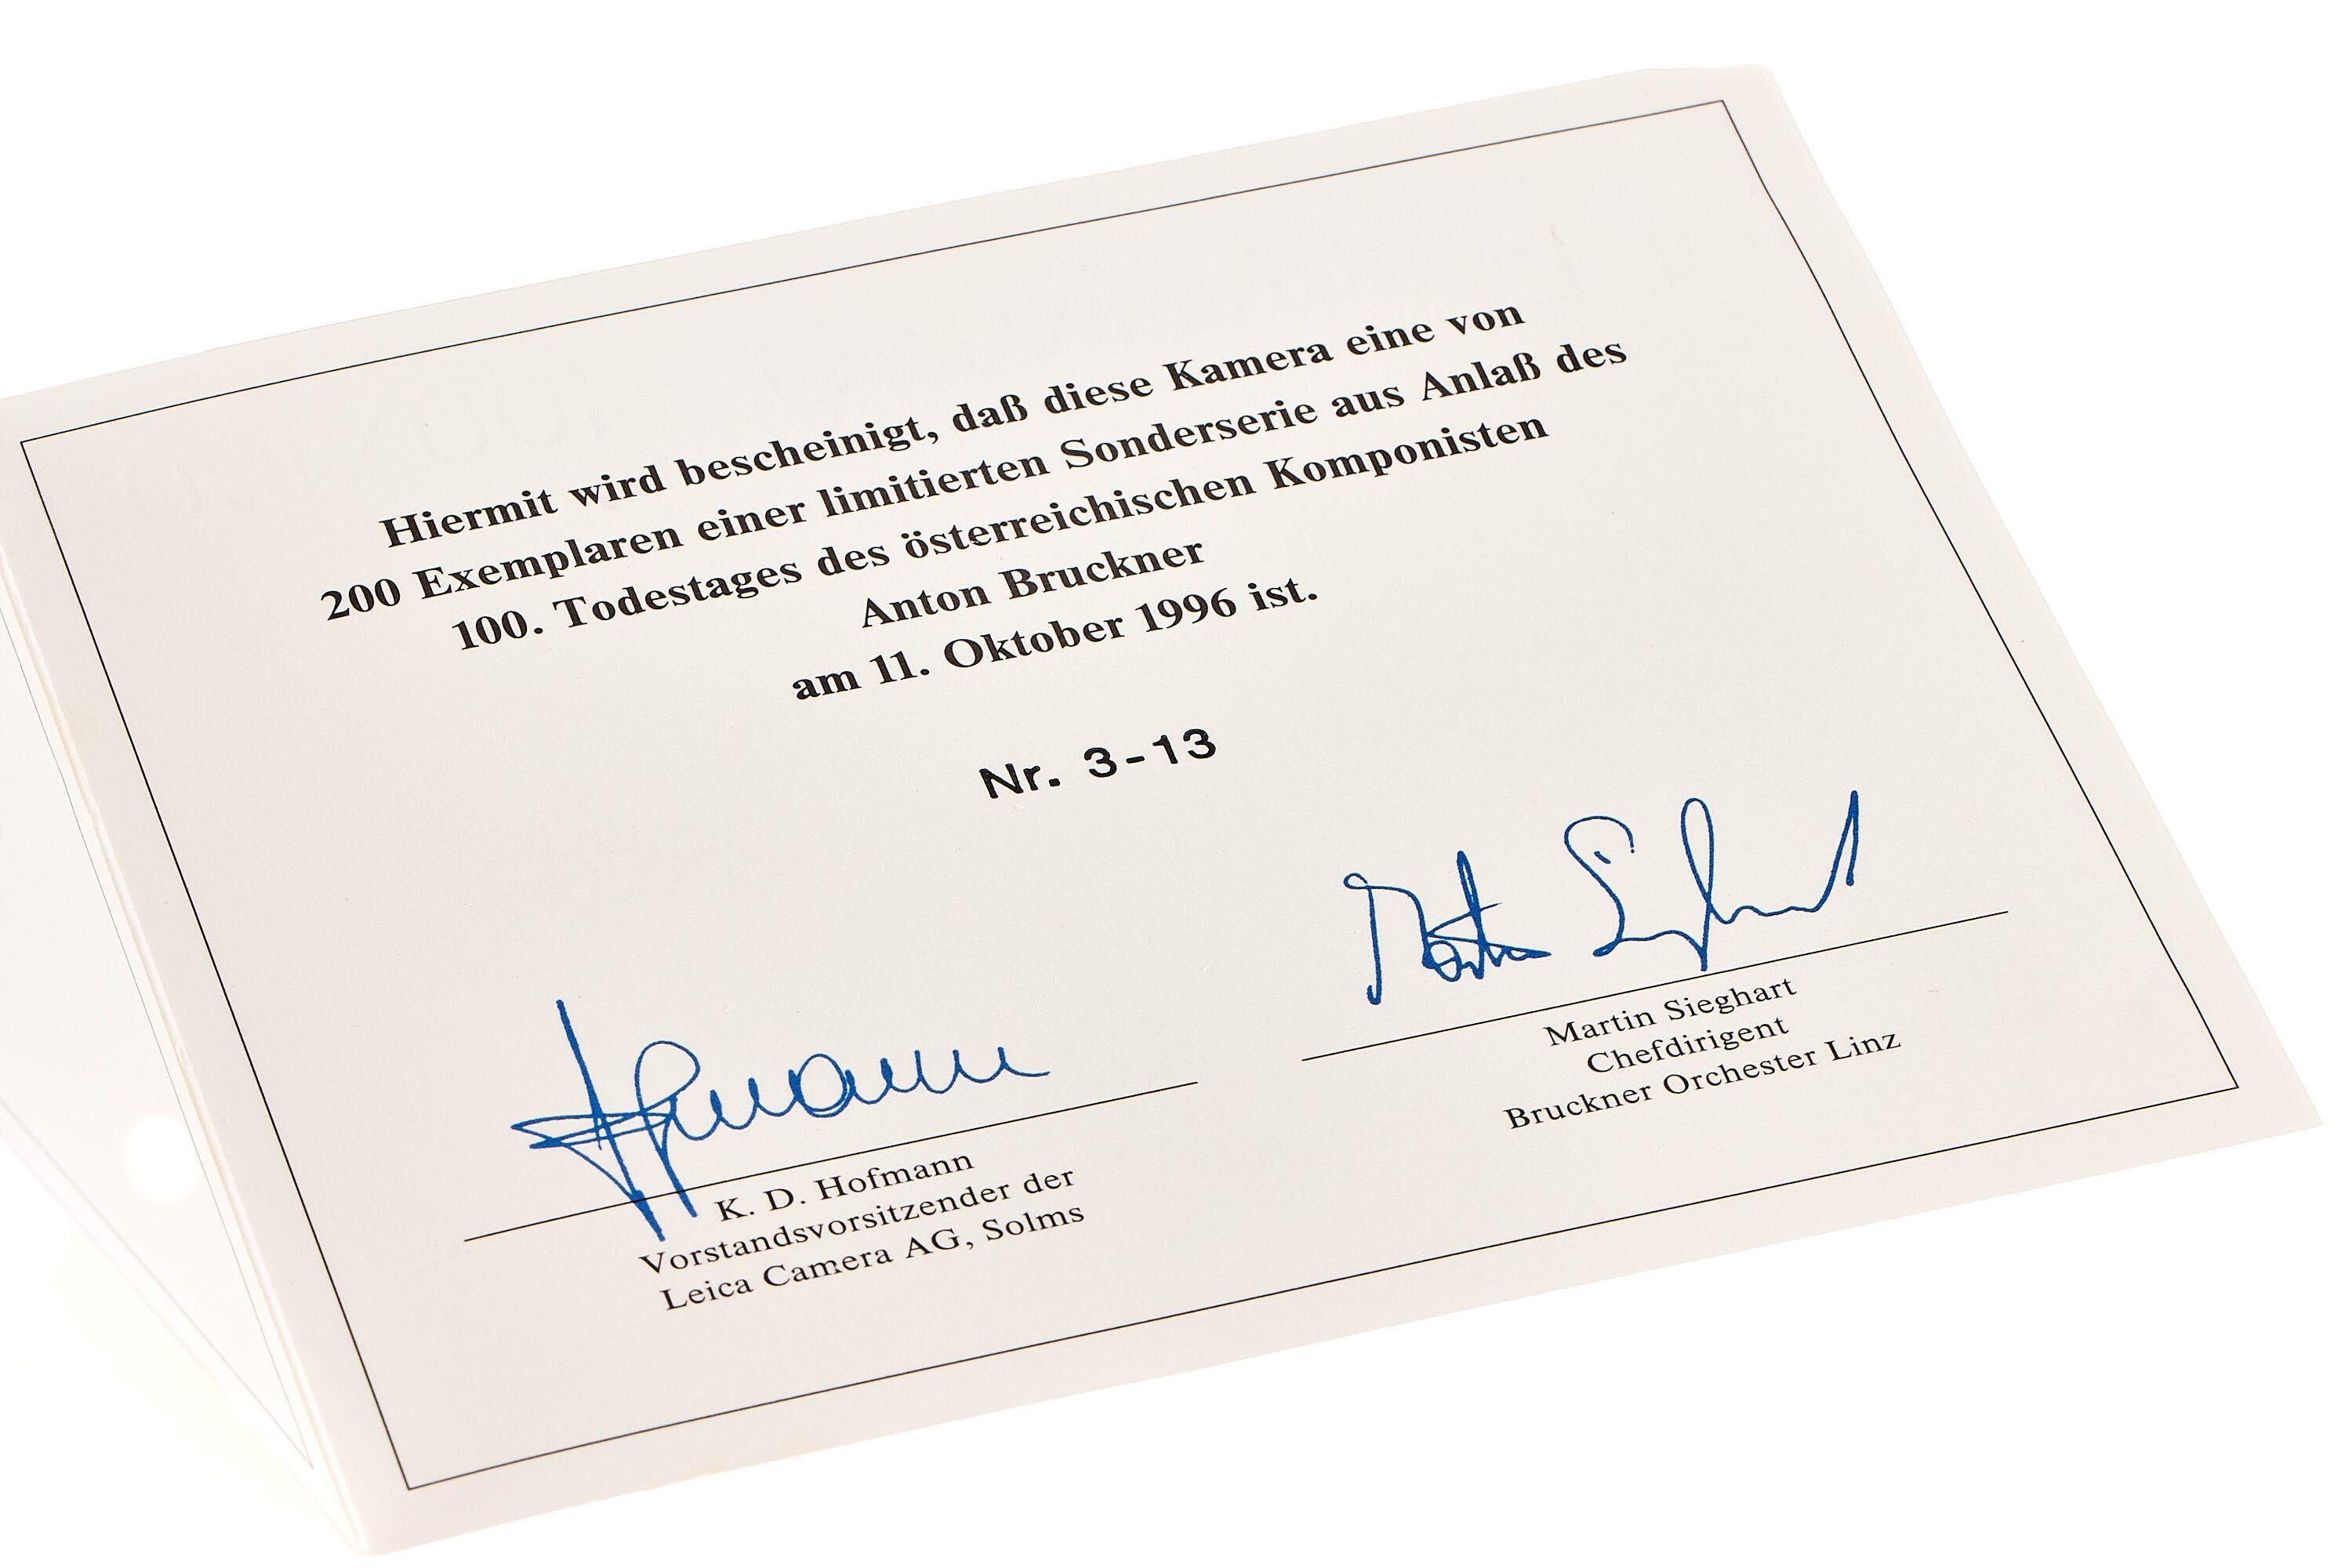 Hiermit wird bescheinigt, daß diese Kamera eine von
200 Exemplaren einer limitierten Sonderserie aus Anlaß des
100. Todestages des österreichischen Komponisten
Anton Bruckner
am 11. Oktober 1996 ist.
Nr. 3-13
Hofmann
K. D. Hofmann
Vorstandsvorsitzender der
Leica Camera AG, Solms
Martin Sieghart
Martin Sieghart
Chefdirigent
Bruckner Orchester Linz